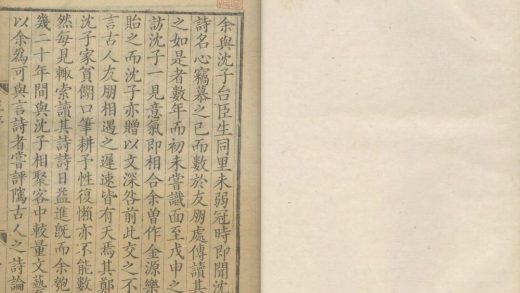 余與沈子台臣生同里未弱冠時即聞沈
詩名心竊慕之已而數於友朋處傳讀其
之如是者數年而初未嘗識面至戊申之
訪沈子一見意氣即相合余曾作金源樂
貽之而沈子亦贈以文深咎前此交之不
言古人友朋相遇之遲速皆有天焉其鄭
沈子家貧餬口筆耕予性復懶亦不能數
然每見輙索讀其詩詩日益進旣而余匏
幾二十年間與沈子相聚客中較量文藝
以余爲可與言詩者嘗評隲古人之詩論